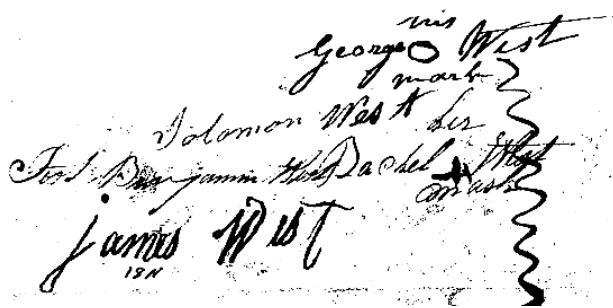 his
George O West
mark
Solomon West her
Benjamin West Rachel + West
mark
James West